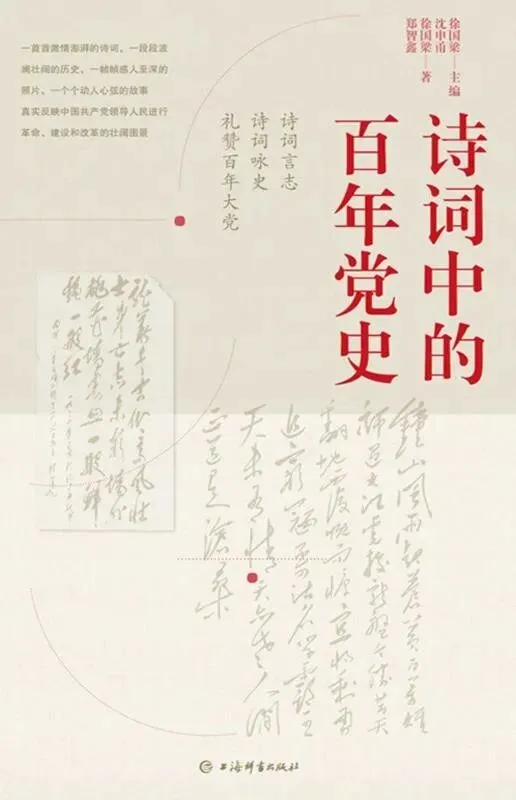 徐国梁 — 主编
沈申甬
徐国梁 — 著
郑智鑫
诗词中的
百年党史
诗词言志
诗词咏史
礼赞百年大党
一首首激情澎湃的诗词，一段段波
澜壮阔的历史、一帧帧感人至深的
照片、一个个动人心弦的故事
真实反映中国共产党领导人民进行
革命、建设和改革的壮阔图景
鐘山風雨起蒼黄百萬雄
師過大江虎踞龍盤今勝昔天
翻地覆慨而慷宜將剩勇
追窮寇不可沽名學霸王
天若有情天亦老人間
正道是滄桑
上海辞书出版社